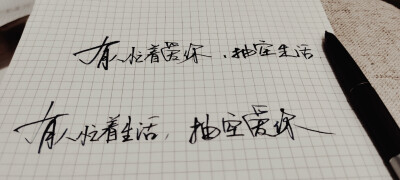 有人忙着爱你，抽空生活
有人忙着生活，抽空爱你